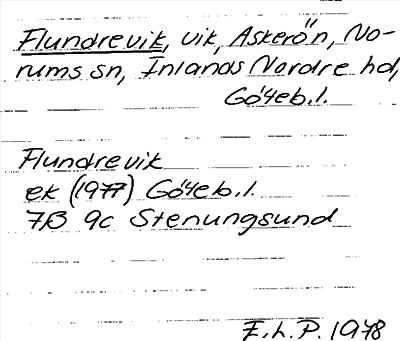 Flundrevik, vik, Askerön, No-
rums sn, Inlands Nordre hd,
Göteb. l.
Flundrevik
ek (1977) Göteb. l.
7B 9c Stenungsund
E.L.P. 1978